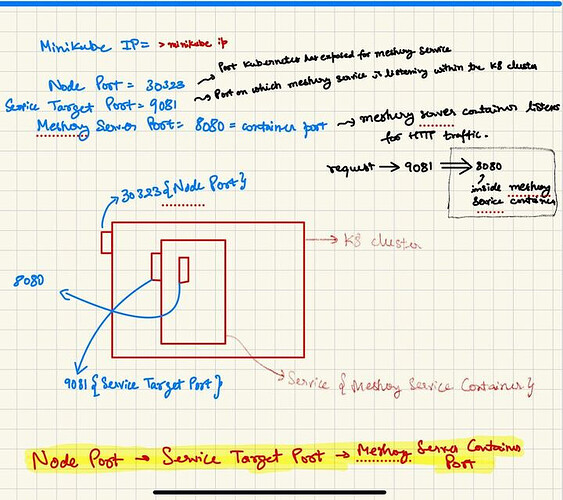 Minikube IP = > minikube ip
Node Port = 30323 → Port Kubernetes has exposed for meshery service
Service Target Port = 9081 → Port on which meshery service is listening within the K8 cluster
Meshery Server Port = 8080 = container port → meshery server container listens
for HTTP traffic.
request → 9081 ⇒ 8080
inside meshery
service container
30323 {Node Port}
K8 cluster
8080
9081 {Service Target Port}
Service {Meshery Service Container}
Node Port → Service Target Port → Meshery Server Container
Port